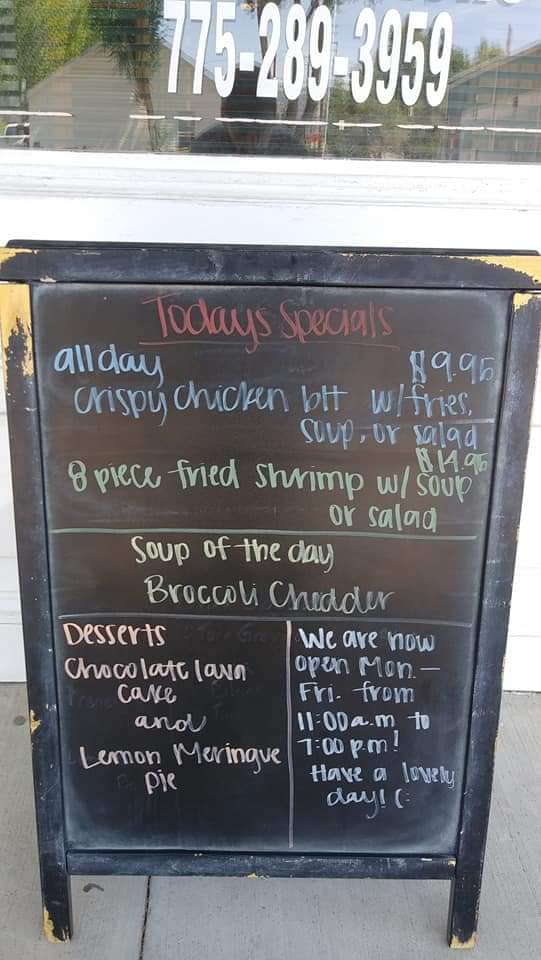 775-289-3959
Todays Specials
all day $9.95
crispy chicken blt w/fries,
soup, or salad
$14.95
8 piece fried shrimp w/ soup
or salad
Soup of the day
Broccoli Chedder
Desserts
Chocolate lava
cake
and
Lemon Meringue
pie
We are now
open Mon -
Fri. from
11:00 a.m to
7:00 pm!
Have a lovely
day! (: